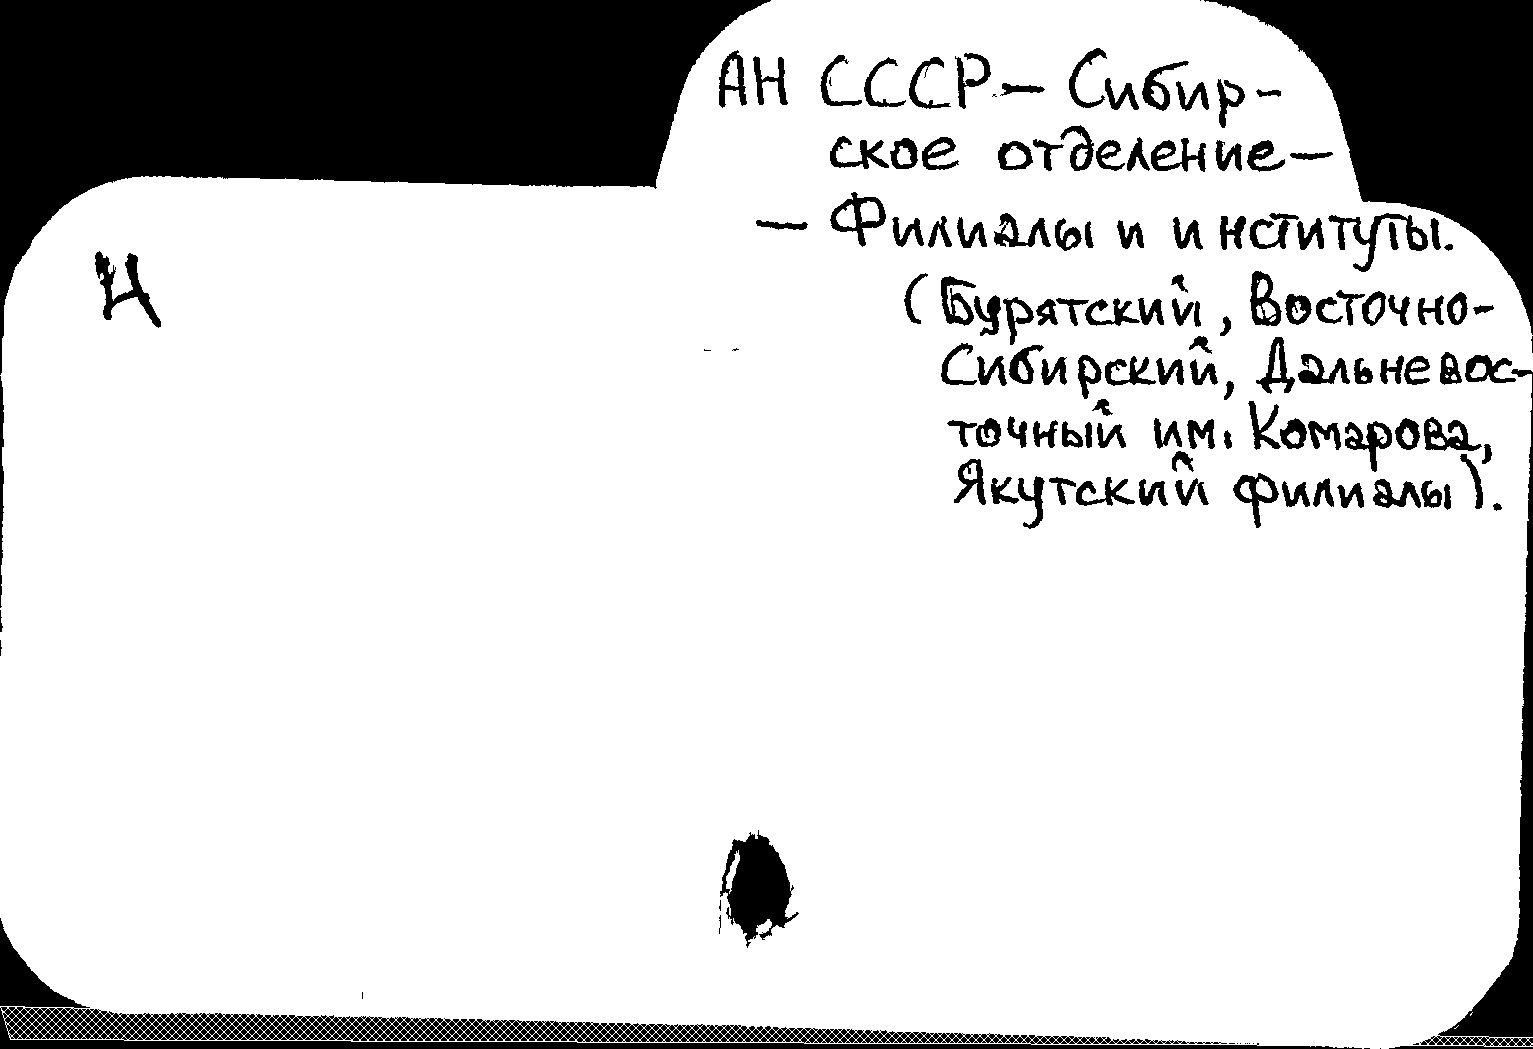 АН СССР — Сибир-
ское отделение —
— Филиалы и институты.
(Бурятский, Восточно-
Сибирский, Дальневос-
точный им. Комарова,
Якутский филиалы).
Ч